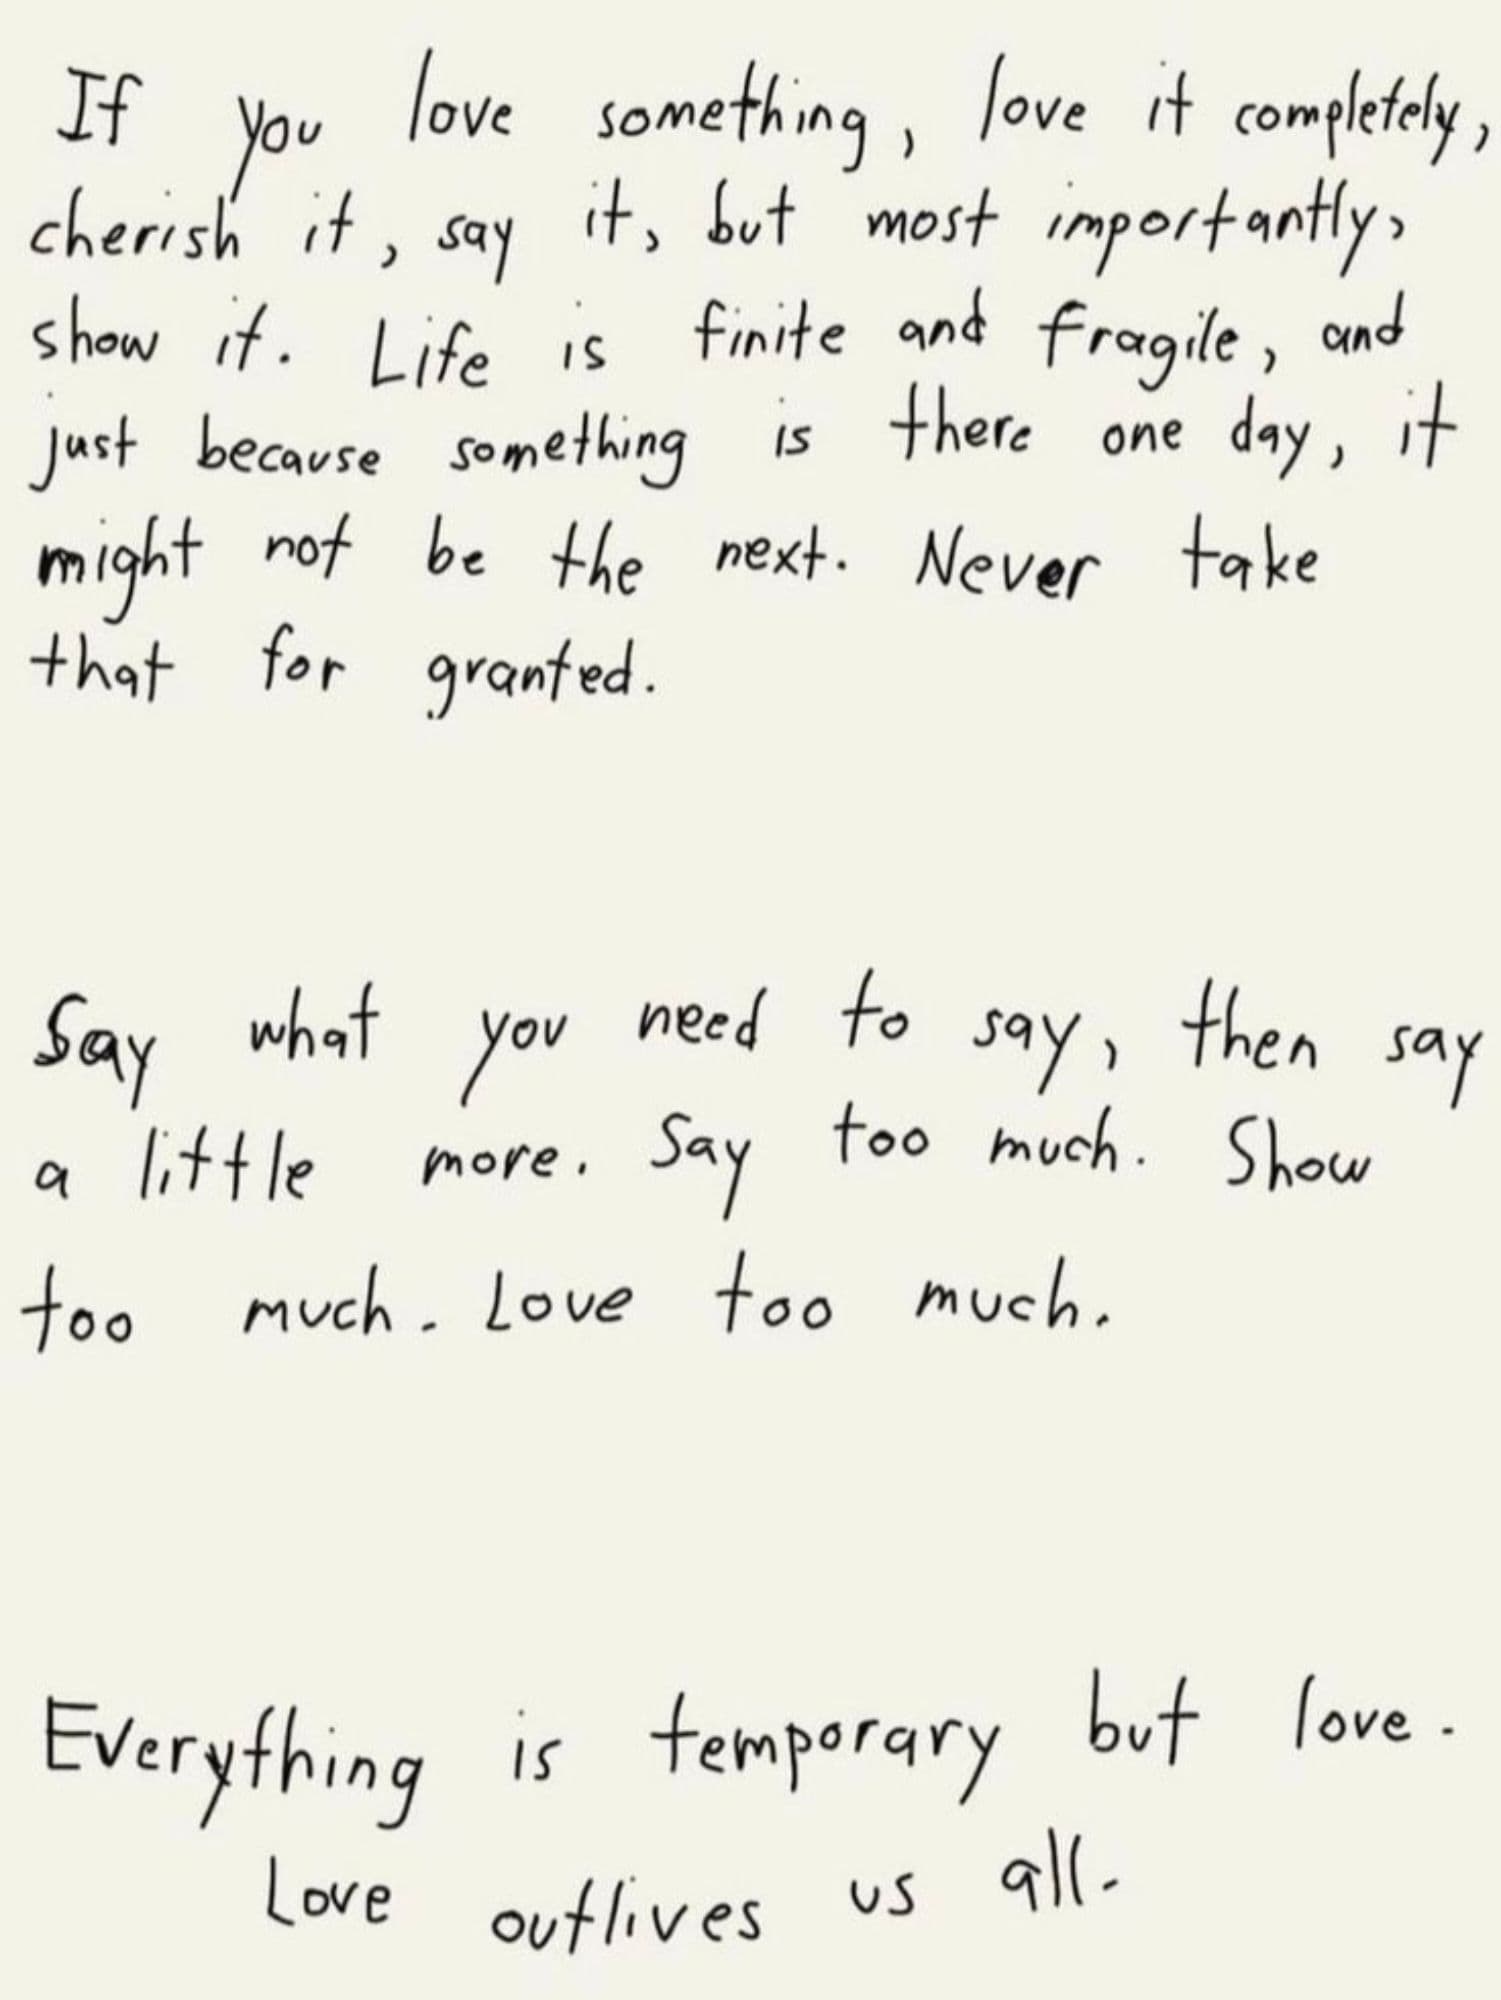 If you love something, love it completely,
cherish it, say it, but most importantly,
show it. Life is finite and fragile, and
just because something is there one day, it
might not be the next. Never take
that for granted.
Say what you need to say, then say
a little more. Say too much. Show
too much. Love too much.
Everything is temporary but love.
Love outlives us all.